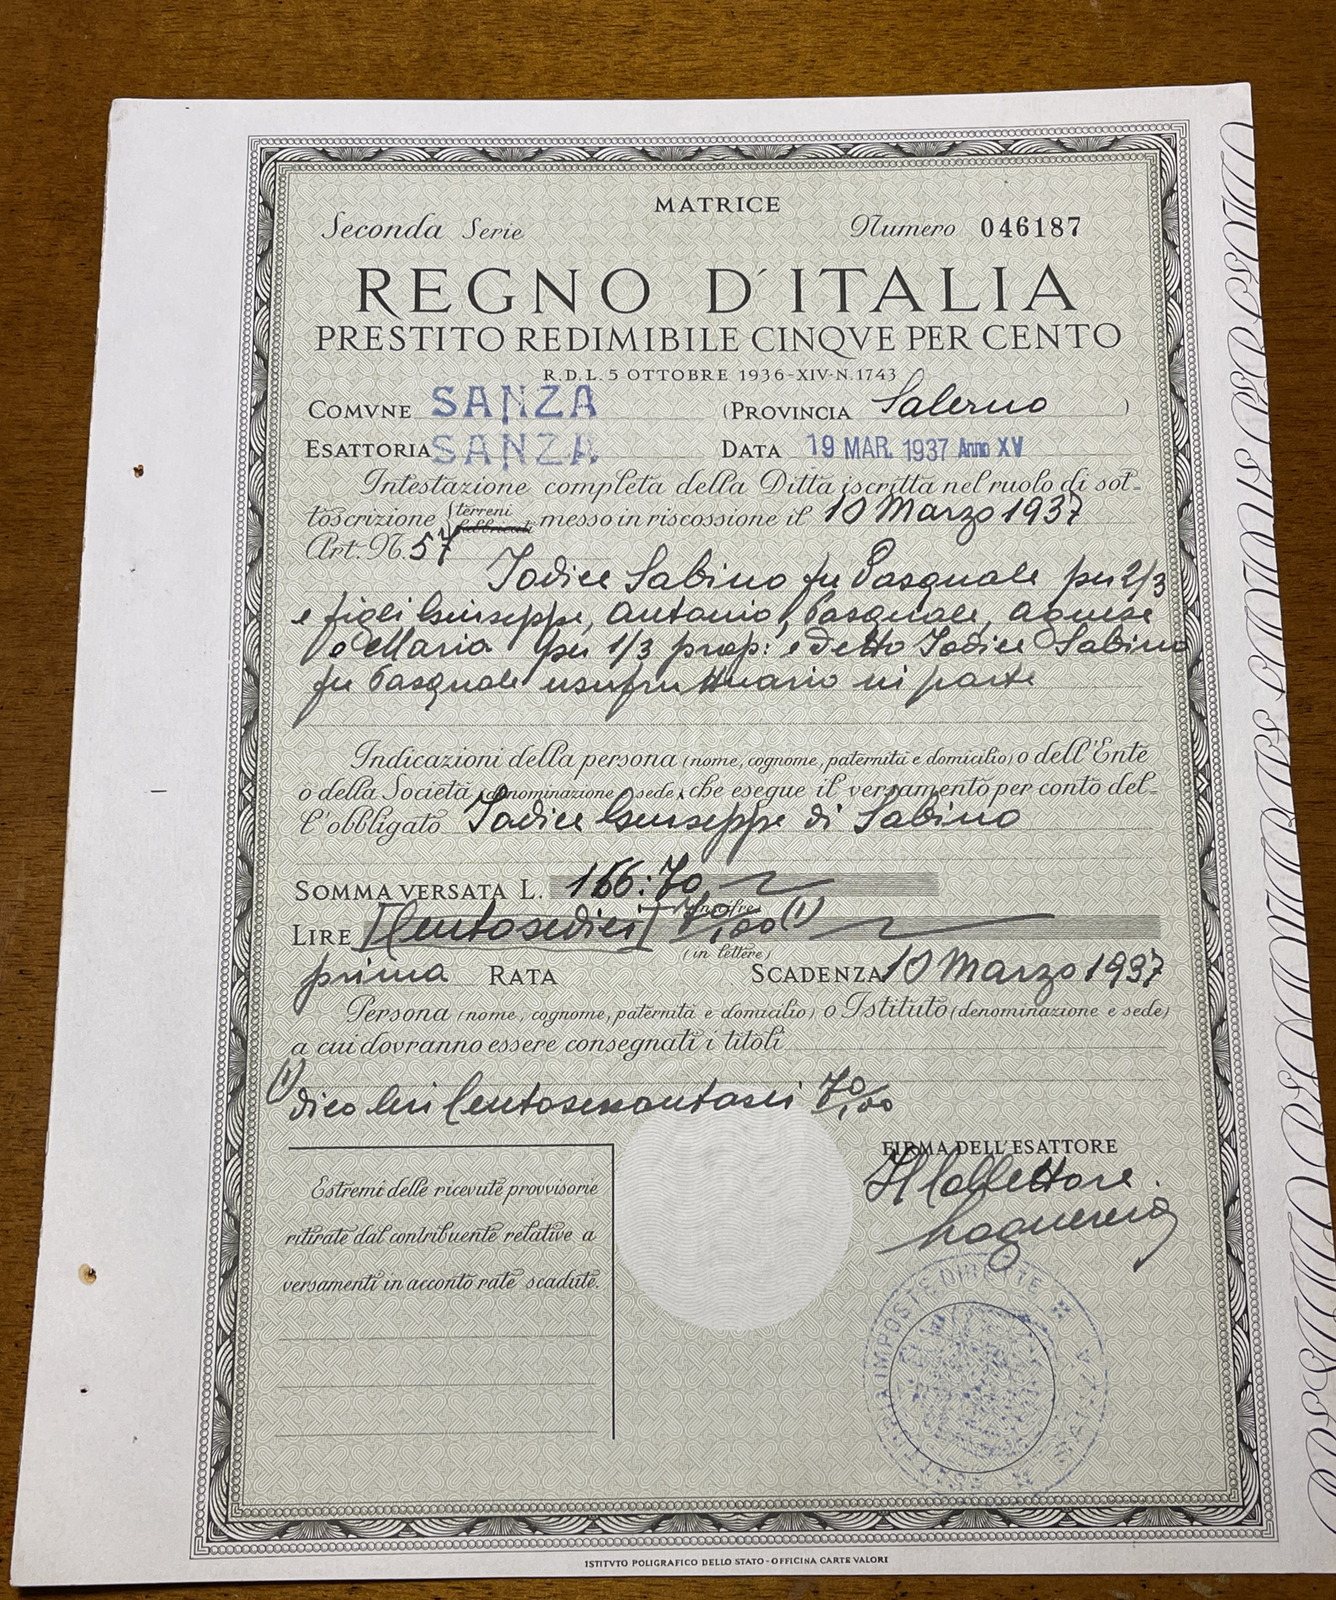 MATRICE
Seconda Serie Numero 046187
REGNO D'ITALIA
PRESTITO REDIMIBILE CINQVE PER CENTO
R.D.L. 5 OTTOBRE 1936-XIV-N.1743
COMVNE SANZA (PROVINCIA Salerno )
ESATTORIA SANZA DATA 19 MAR. 1937 Anno XV
Intestazione completa della Ditta iscritta nel ruolo di sot-
toscrizione terreni fabbricati messo in riscossione il 10 Marzo 1937
Art. N. 57
Iodice Sabino fu Pasquale per 2/3
e figli Giuseppe, Antonio, Pasquale, Agnese
e Maria per 1/3 prop: e detto Iodice Sabino
fu Pasquale usufruttuario in parte
Indicazioni della persona (nome, cognome, paternità e domicilio) o dell'Ente
o della Società (denominazione e sede) che esegue il versamento per conto del-
l'obbligato Iodice Giuseppe di Sabino
SOMMA VERSATA L. 166:70
LIRE [Centosedici] 70/100 (1)
(in lettere)
prima RATA SCADENZA 10 Marzo 1937
Persona (nome, cognome, paternità e domicilio) o Istituto (denominazione e sede)
a cui dovranno essere consegnati i titoli
(1) dico lire Centosessantasei 70/100
FIRMA DELL'ESATTORE
Il Collettore
Estremi delle ricevute provvisorie
ritirate dal contribuente relative a
versamenti in acconto rate scadute.
IMPOSTE DIRETTE
ISTITVTO POLIGRAFICO DELLO STATO - OFFICINA CARTE VALORI